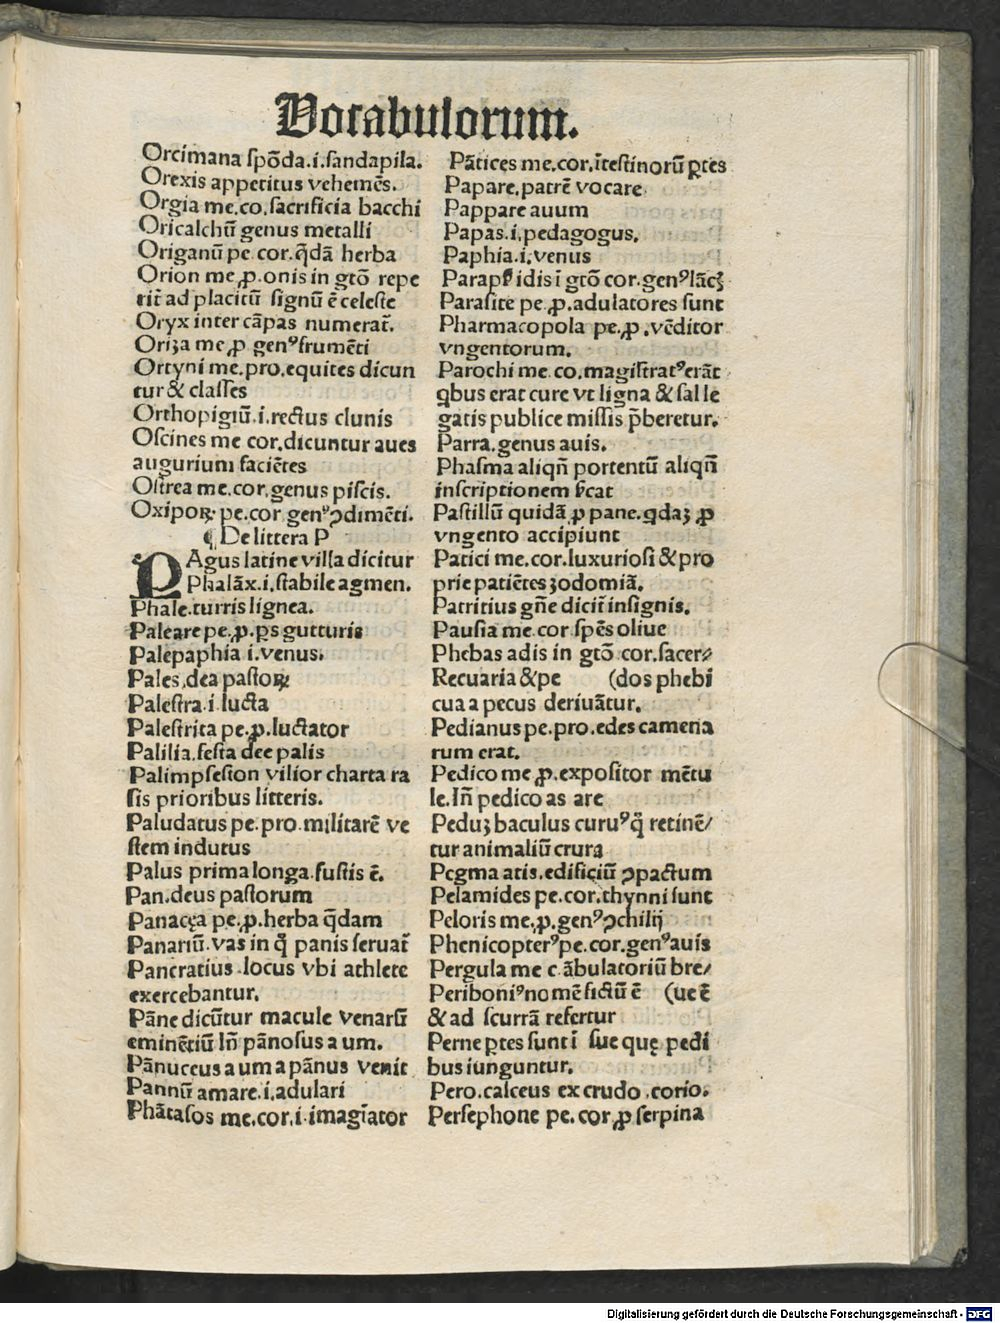 Vocabulorum.
Orcimana spōda.i.sandapila.
Orexis appetitus vehemēs.
Orgia me.co.sacrificia bacchi
Oricalchū genus metalli
Origanū pe cor.q̄dā herba
Orion me.ꝓ.onis in gtō repe
rit̄ ad placitū signū ē celeste
Oryx inter cāpas numerat̄.
Oriza me.ꝓ genꝰ frumēti
Ortyni me.pro.equites dicun
tur & classes
Orthopigiū.i.rectus clunis
Oscines me cor.dicuntur aues
augurium faciētes
Ostrea me.cor.genus piscis.
Oxiporꝝ pe.cor genꝰ ꝯdimēti.
¶ De littera P
PAgus latine villa dicitur
Phalāx.i.stabile agmen.
Phale.turris lignea.
Paleare pe.ꝓ.ps gutturis
Palepaphia i.venus.
Pales.dea pastoꝝ
Palestra.i.lucta
Palestrita pe.ꝓ.luctator
Palilia.festa dee palis
Palimpsesion vilior charta ra
sis prioribus litteris.
Paludatus pe.pro.militarē ve
stem indutus
Palus prima longa.fustis ē.
Pan.deus pastorum
Panacęa pe.ꝓ.herba q̄dam
Panariū.vas in q̄ panis seruat̄
Pancratius.locus vbi athlete
exercebantur.
Pāne dicūtur macule venarū
eminētiū In̄ pānosus a um.
Pānuceus a um a pānus venit
Pannū amare.i.adulari
Phātasos me.cor.i.imagīator
Pātices me.cor.ītestinorū ꝑtes
Papare.patrē vocare
Pappare auum
Papas.i.pedagogus.
Paphia.i.venus
Parapsidis ī gtō cor.genꝰ lācꝫ
Parasite pe.ꝓ.adulatores sunt
Pharmacopola pe.ꝓ.vēditor
vngentorum.
Parochi me.co.magistratꝰ erāt
qbus erat cure vt ligna & sal le
gatis publice missis p̄beretur.
Parra.genus auis.
Phasma aliqn̄ portentū aliqn̄
inscriptionem
Pastillū quidā ꝓ pane.qdaꝫ ꝓ
vngento accipiunt
Patici me.cor.luxuriosi & pro
prie patiētes zodomiā.
Patritius gn̄e dicit̄ insignis.
Pausia me.cor spēs oliue
Phebas adis in gtō cor.sacer⸗
Recuaria & pe (dos phebi
cua a pecus deriuātur.
Pedianus pe.pro.edes cameria
rum erat.
Pedico me.ꝓ.expositor mētu
le.In̄ pedico as are
Peduꝫ baculus curuꝰ q̄ retinē/
tur animaliū crura
Pegma atis.edificiū ꝯpactum
Pelamides pe.cor.thynni sunt
Peloris me.ꝓ.genꝰ ꝯchilij
Phenicopterꝰ pe.cor.genꝰ auis
Pergula me c ābulatoriū bre/
Peribonīꝰ nomē fictū ē (ue ē
& ad scurrā refertur
Perne ꝑtes sunt ī sue quę pedi
bus iunguntur.
Pero.calceus ex crudo.corio.
Persephone pe.cor.ꝓserpina
Digitalisierung gefördert durch die Deutsche Forschungsgemeinschaft - DFG